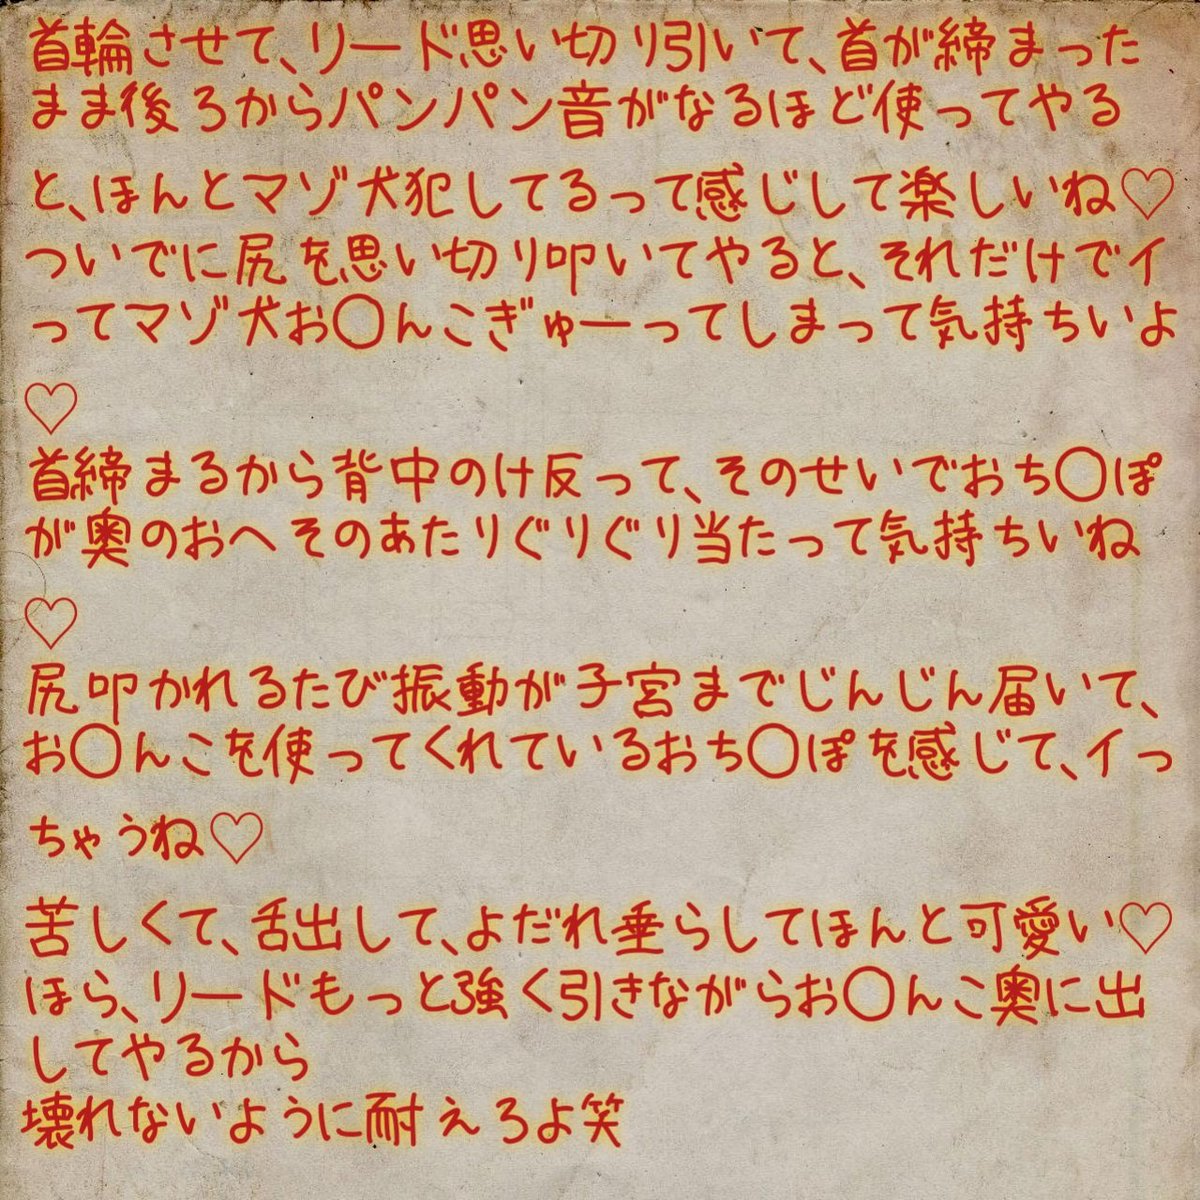 首輪させて、リード思い切り引いて、首が締まった
まま後ろからパンパン音がなるほど使ってやる
と、ほんとマゾ犬犯してるって感じして楽しいね♡
ついでに尻を思い切り叩いてやると、それだけでイ
ってマゾ犬お〇んこぎゅーってしまって気持ちいよ
♡
首締まるから背中のけ反って、そのせいでおち〇ぽ
が奥のおへそのあたりぐりぐり当たって気持ちいね
♡
尻叩かれるたび振動が子宮までじんじん届いて、
お〇んこを使ってくれているおち〇ぽを感じて、イっ
ちゃうね♡
苦しくて、舌出して、よだれ垂らしてほんと可愛い♡
ほら、リードもっと強く引きながらお〇んこ奥に出
してやるから
壊れないように耐えろよ笑